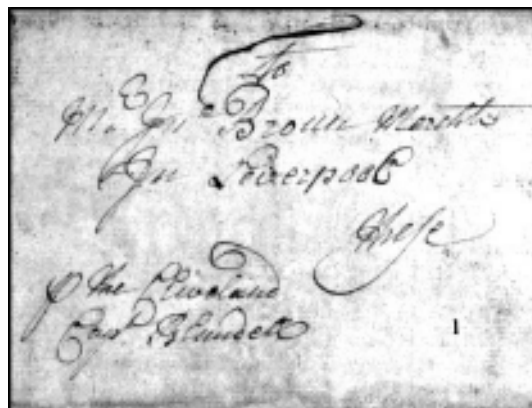 To
Mr Jnº Broun Merchts
In Liverpool
These
p the Cliveland
Capt Blundell
1